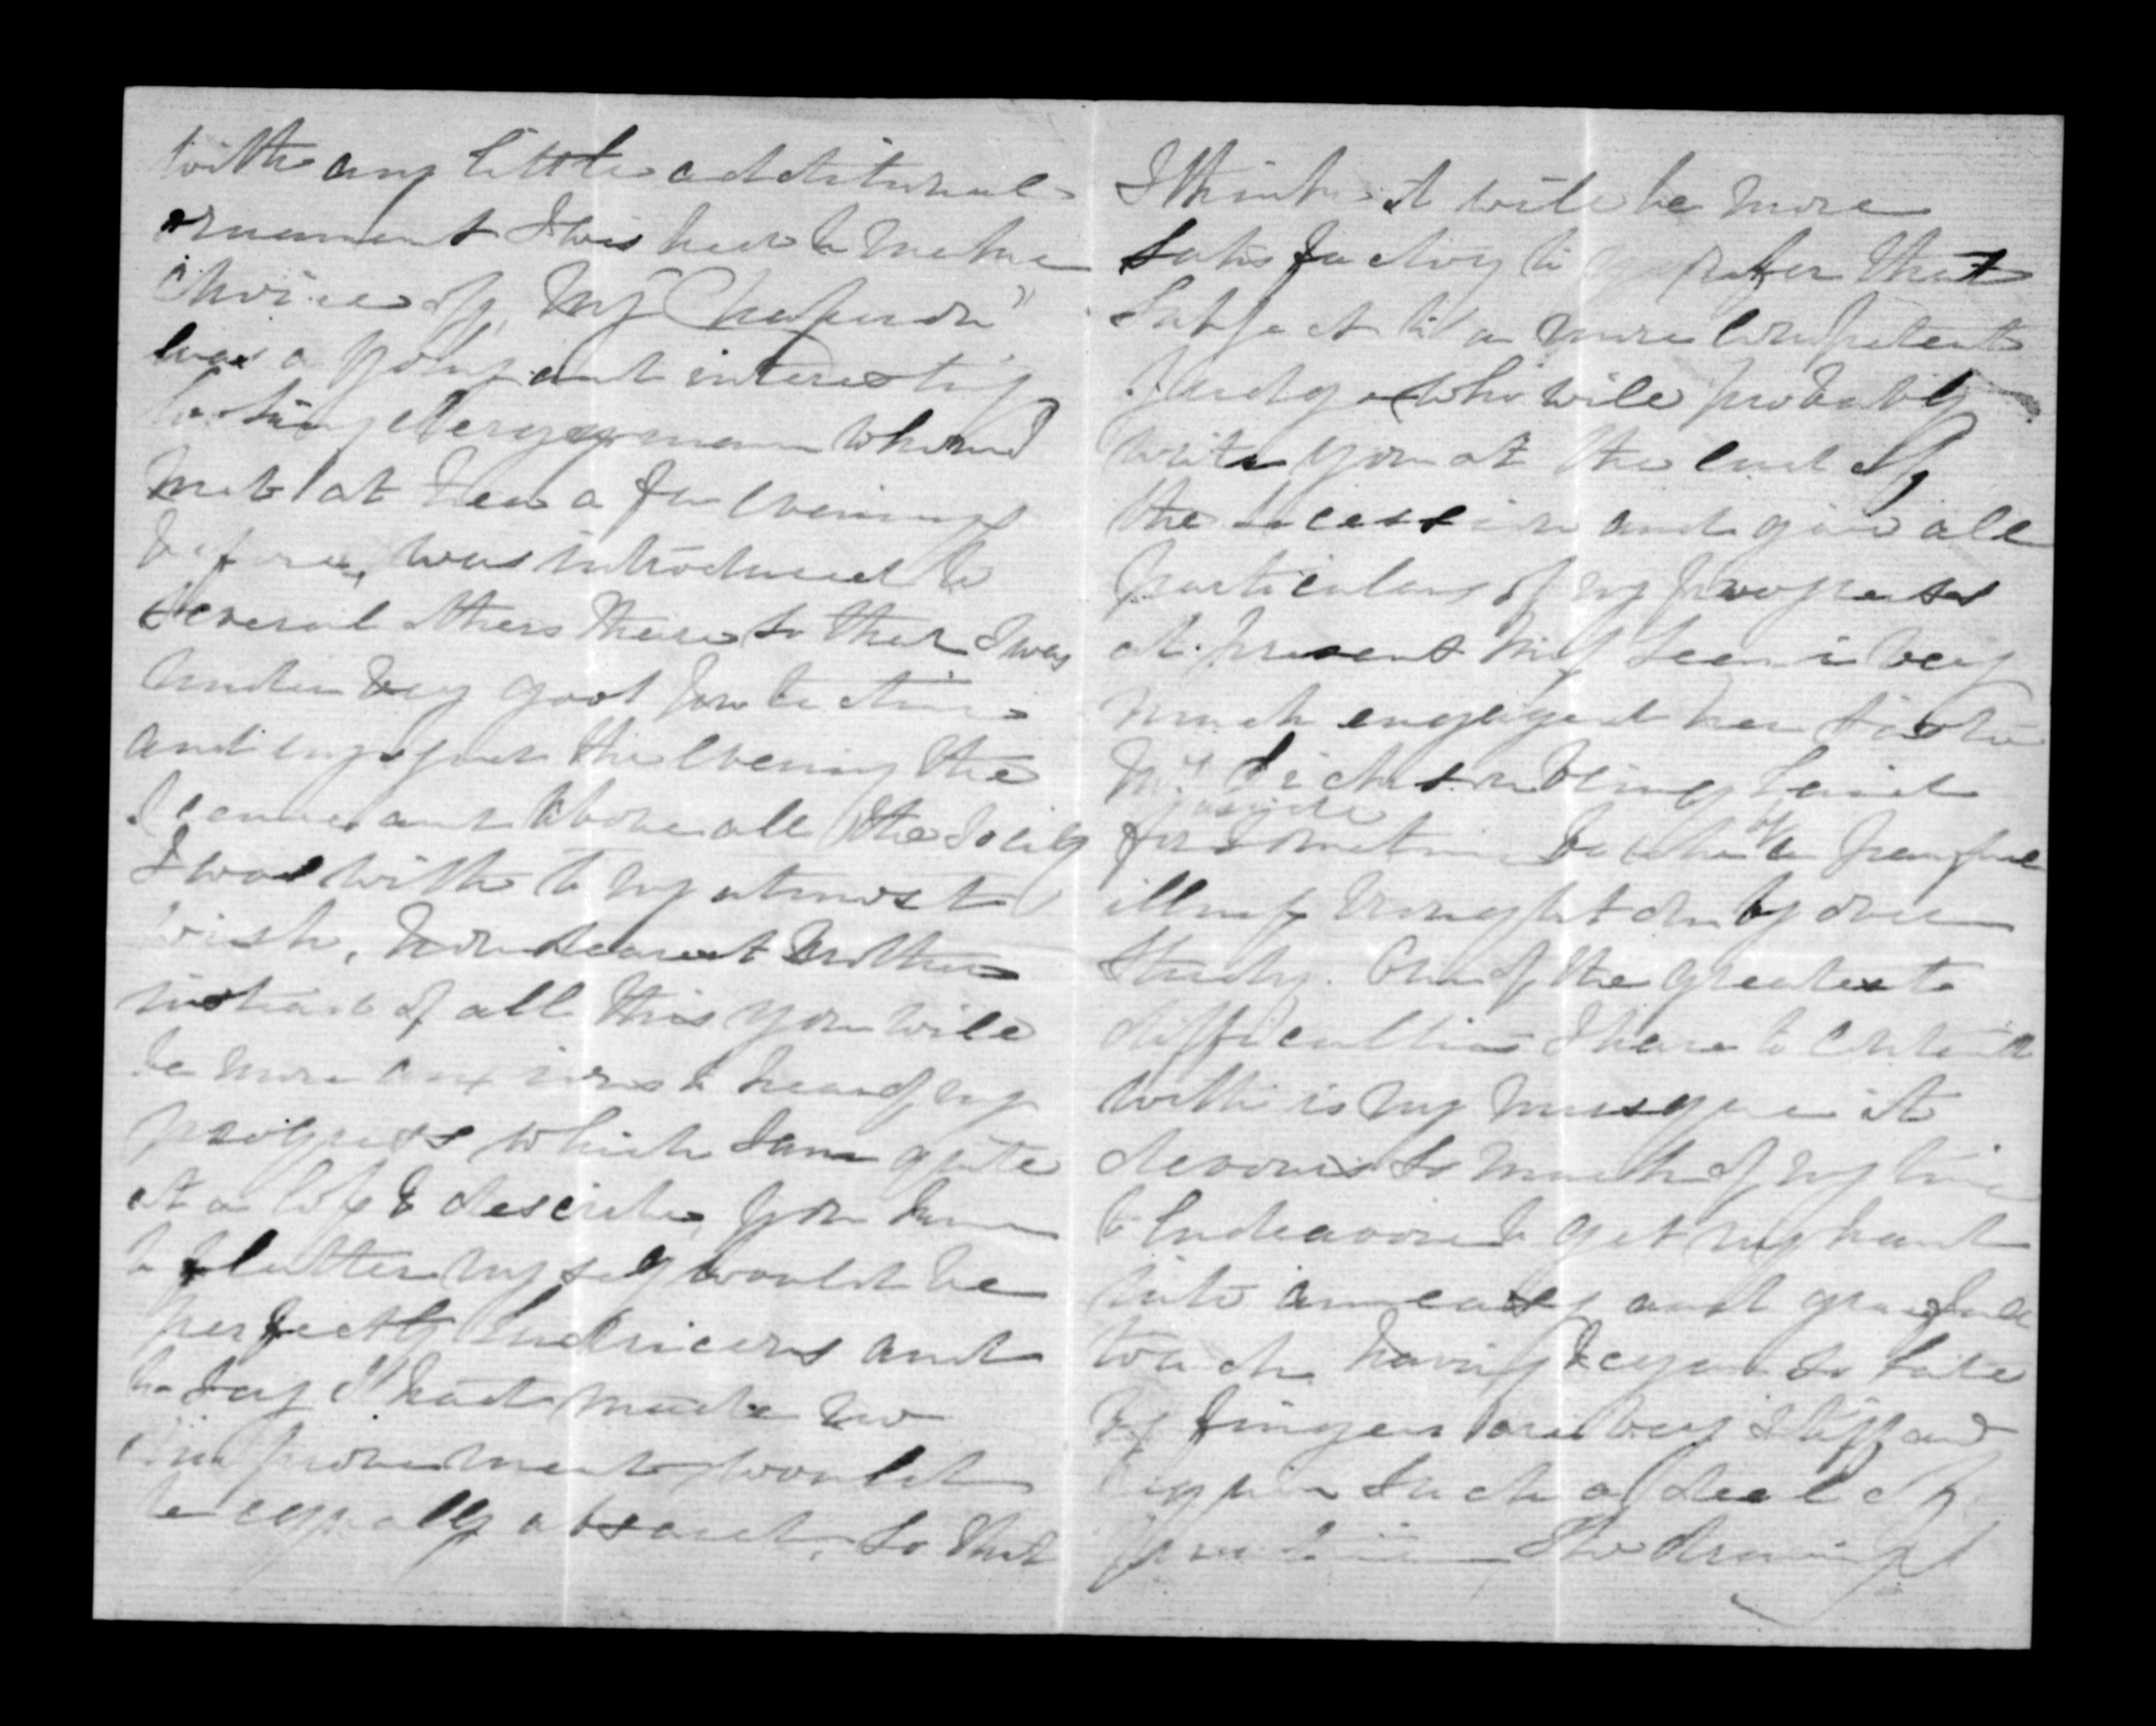 with any little additional
ornament I wished to make
choice of, My "Chaperon"
was a young and interesting
looking clergyman whom I
met at tea a few evenings
before, was introduced to
several others there so that I was
under very good protection
and enjoyed the evening the
scene and above all the society
I was with to my utmost
wish, Now dearest Mother
instead of all this you will
be more anxious to hear of my
progress which I am quite
at a loss to describe, you know
to flatter myself would be
perfectly ludricous and
to say I had made no
improvement would
be equally absurd, so that
I think it will be more
satisfactory to refer that
subject to a more competent
judge who will probably
write you at the end of
the and give all
particulars of my progress
at present Miss is very
much engaged her sister
Mrs being laid
aside
for sometime by a painful
illness brought on by over
study. One of the greatest
difficulties I have to contend
with is my musique it
devours so much of my time
to endeavour to get my hand
into an easy and graceful
touch having begun so late
my fingers are very stiff and
require such a deal of
practice — The drawing